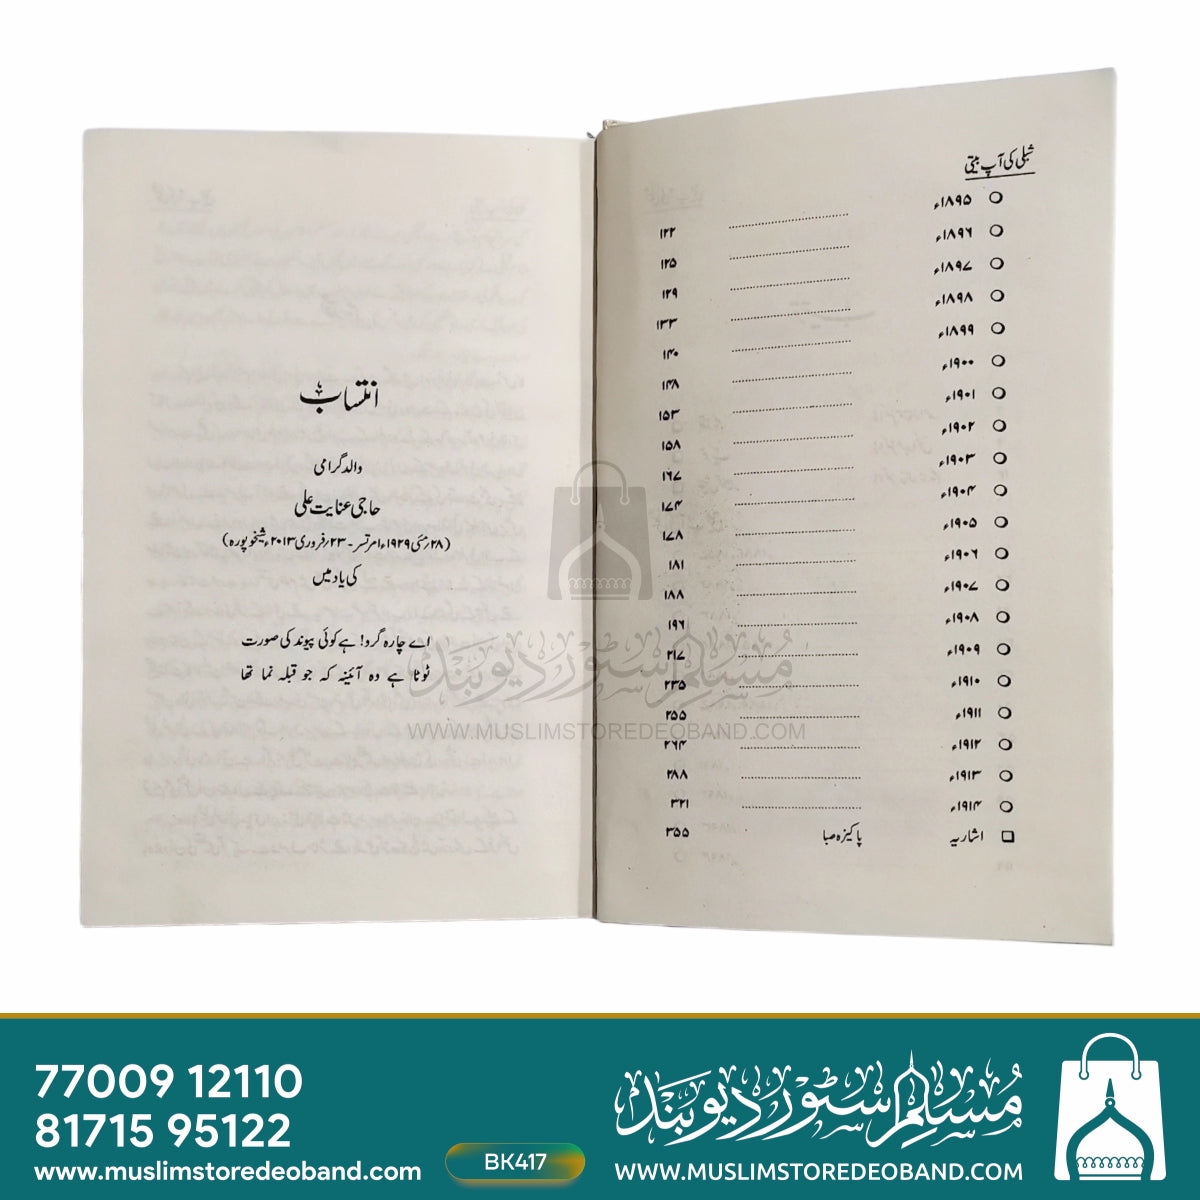 شبلی کی آپ بیتی
○ ۱۸۹۵ء ........ ۱۲۲
○ ۱۸۹۶ء ........ ۱۲۵
○ ۱۸۹۷ء ........ ۱۲۹
○ ۱۸۹۸ء ........ ۱۳۳
○ ۱۸۹۹ء ........ ۱۴۰
○ ۱۹۰۰ء ........ ۱۴۸
○ ۱۹۰۱ء ........ ۱۵۳
○ ۱۹۰۲ء ........ ۱۵۸
○ ۱۹۰۳ء ........ ۱۶۷
○ ۱۹۰۴ء ........ ۱۷۴
○ ۱۹۰۵ء ........ ۱۷۸
○ ۱۹۰۶ء ........ ۱۸۱
○ ۱۹۰۷ء ........ ۱۸۸
○ ۱۹۰۸ء ........ ۱۹۶
○ ۱۹۰۹ء ........ ۲۱۷
○ ۱۹۱۰ء ........ ۲۳۵
○ ۱۹۱۱ء ........ ۲۵۵
○ ۱۹۱۲ء ........ ۲۶۴
○ ۱۹۱۳ء ........ ۲۸۸
○ ۱۹۱۴ء ........ ۳۲۱
□ اشاریہ پاکیزہ صبا ۳۵۵
انتساب
والد گرامی
حاجی عنایت علی
(۲۸؍مئی ۱۹۲۹ء امرتسر۔ ۲۳؍فروری ۲۰۱۳ء شیخوپورہ)
کی یاد میں
اے چارہ گرو! ہے کوئی پیوند کی صورت
ٹوٹا ہے وہ آئینہ کہ جو قبلہ نما تھا
مسلم سٹور دیوبند
WWW.MUSLIMSTOREDEOBAND.COM
77009 12110
81715 95122
www.muslimstoredeoband.com
BK417
مسلم سٹور دیوبند
WWW.MUSLIMSTOREDEOBAND.COM